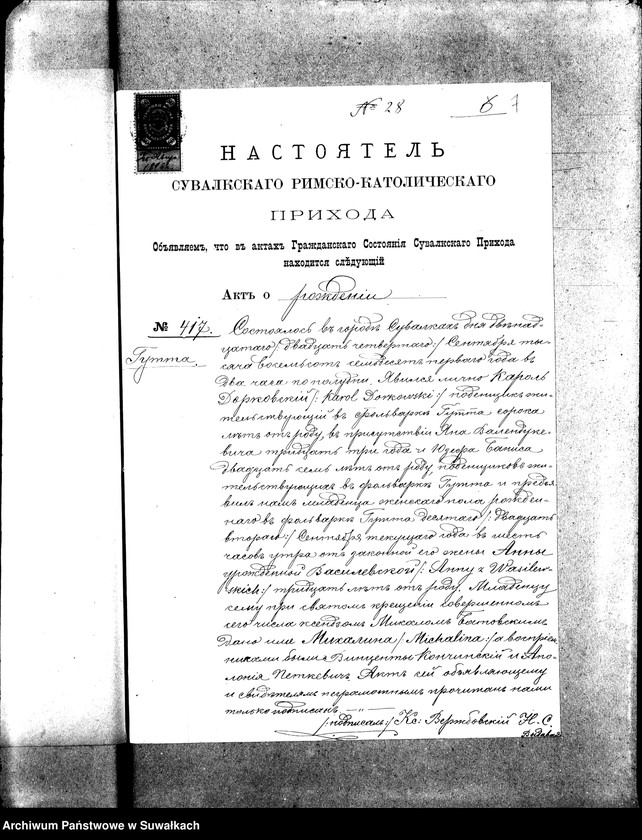 № 28
6 7
НАСТОЯТЕЛЬ
СУВАЛКСКАГО РИМСКО-КАТОЛИЧЕСКАГО
ПРИХОДА
Объявляемъ, что въ актахъ Гражданскаго Состоянія Сувалкскаго Прихода
находится слѣдующій
Актъ о рожденіи
№ 417.
Гутта
Состоялось въ городѣ Сувалкахъ дня двѣнад-
цатаго /двадцать четвертаго:/ Сентября ты-
сяча восемьсотъ семьдесятъ перваго года въ
два часа по полудни. Явился лично Кароль
Дорковскій /: Karol Dorkowski :/ поденщикъ жи-
тельствующій въ фольваркѣ Гутта сорока
лѣтъ отъ роду, въ присутствіи Яна Валендуке-
вича тридцать три года и Юзефа Баниса
двадцать семь лѣтъ отъ роду, поденщиковъ жи-
тельствующихъ въ фольваркѣ Гутта и предъя-
вилъ намъ младенца женскаго пола рожден-
наго въ фольваркѣ Гутта десятаго /: двадцать
втораго :/ Сентября текущаго года въ шесть
часовъ утра отъ законной его жены Анны
урожденной Василевской /: Anny z Wasilew-
skich :/ тридцать лѣтъ отъ роду. Младенцу
сему при святомъ крещеніи совершенномъ
сего числа ксендзомъ Михаломъ
дано имя Михалина /: Michalina :/ а воспріем-
никами были Винценты Кончинскій и Апо-
лонія Петкевичъ. Актъ сей объявляющему
и свидѣтелямъ неграмотнымъ прочитанъ нами
только подписанъ.
/: подписалъ :/ Кс: Вержбовскій Н. С.
Archiwum Państwowe w Suwałkach